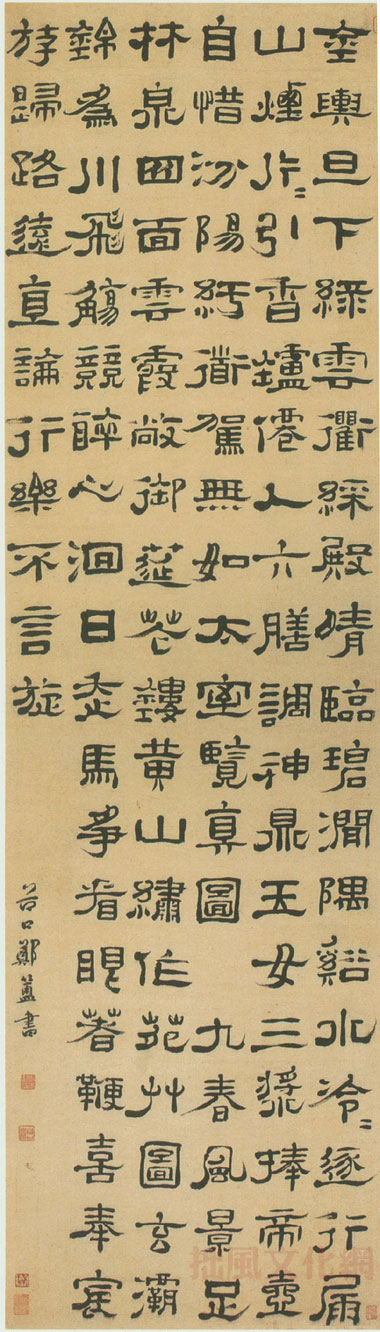 金輿旦下綠雲衢綵殿晴臨碧澗隅谿水泠〻逐行屚
山煙片〻引香鑪僊人六膳調神鼎玉女三漿捧帝壺
自惜汾陽紆道駕無如太室覽真圖 九春風景足
林泉四面雲霞敞御莚花鏤黃山繡作苑艸圖玄灞
錦為川飛觴競醉心迴日走馬爭看眼著鞭喜奉宸
斿歸路遠直論行樂不言旋
谷口鄭簠書
拙風文化網